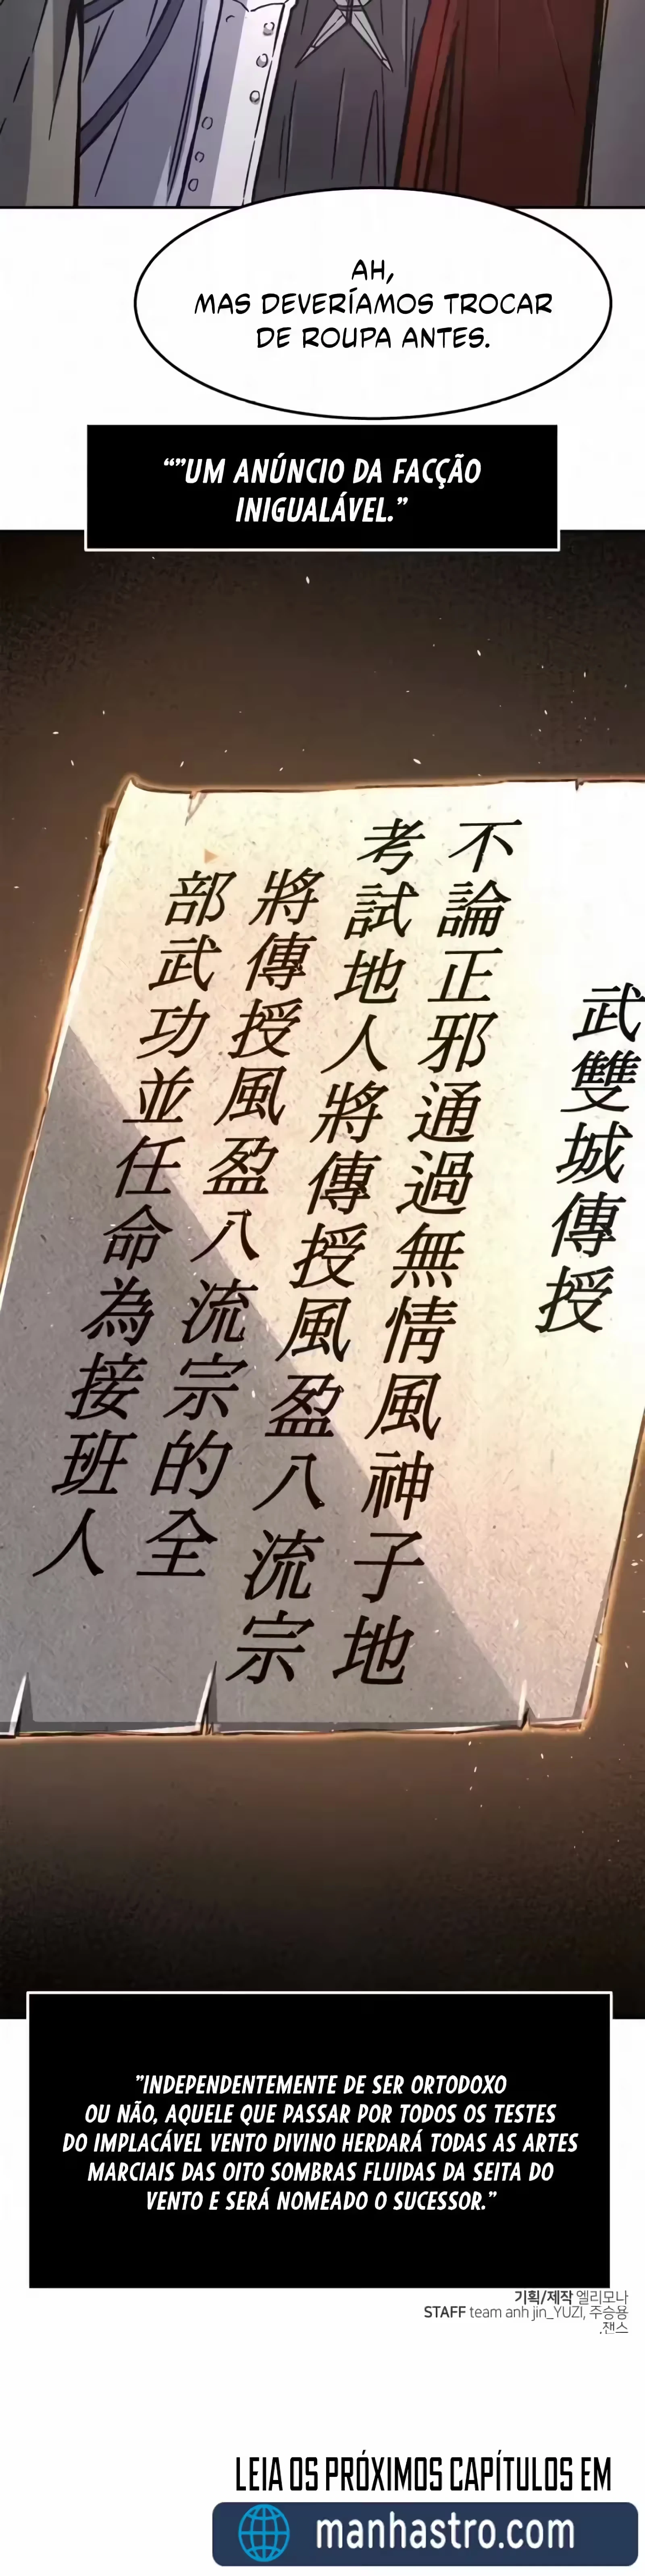 AH,
MAS DEVERÍAMOS TROCAR
DE ROUPA ANTES.
“”UM ANÚNCIO DA FACÇÃO
INIGUALÁVEL.”
武雙城傳授
不論正邪通過無情風神子地
考試地人將傳授風盈八流宗
將傳授風盈八流宗的全
部武功並任命為接班人
"INDEPENDENTEMENTE DE SER ORTODOXO
OU NÃO, AQUELE QUE PASSAR POR TODOS OS TESTES
DO IMPLACÁVEL VENTO DIVINO HERDARÁ TODAS AS ARTES
MARCIAIS DAS OITO SOMBRAS FLUIDAS DA SEITA DO
VENTO E SERÁ NOMEADO O SUCESSOR."
기획/제작 엘리모나
STAFF team anh jin_YUZI, 주승용
,잰스
LEIA OS PRÓXIMOS CAPÍTULOS EM
manhastro.com